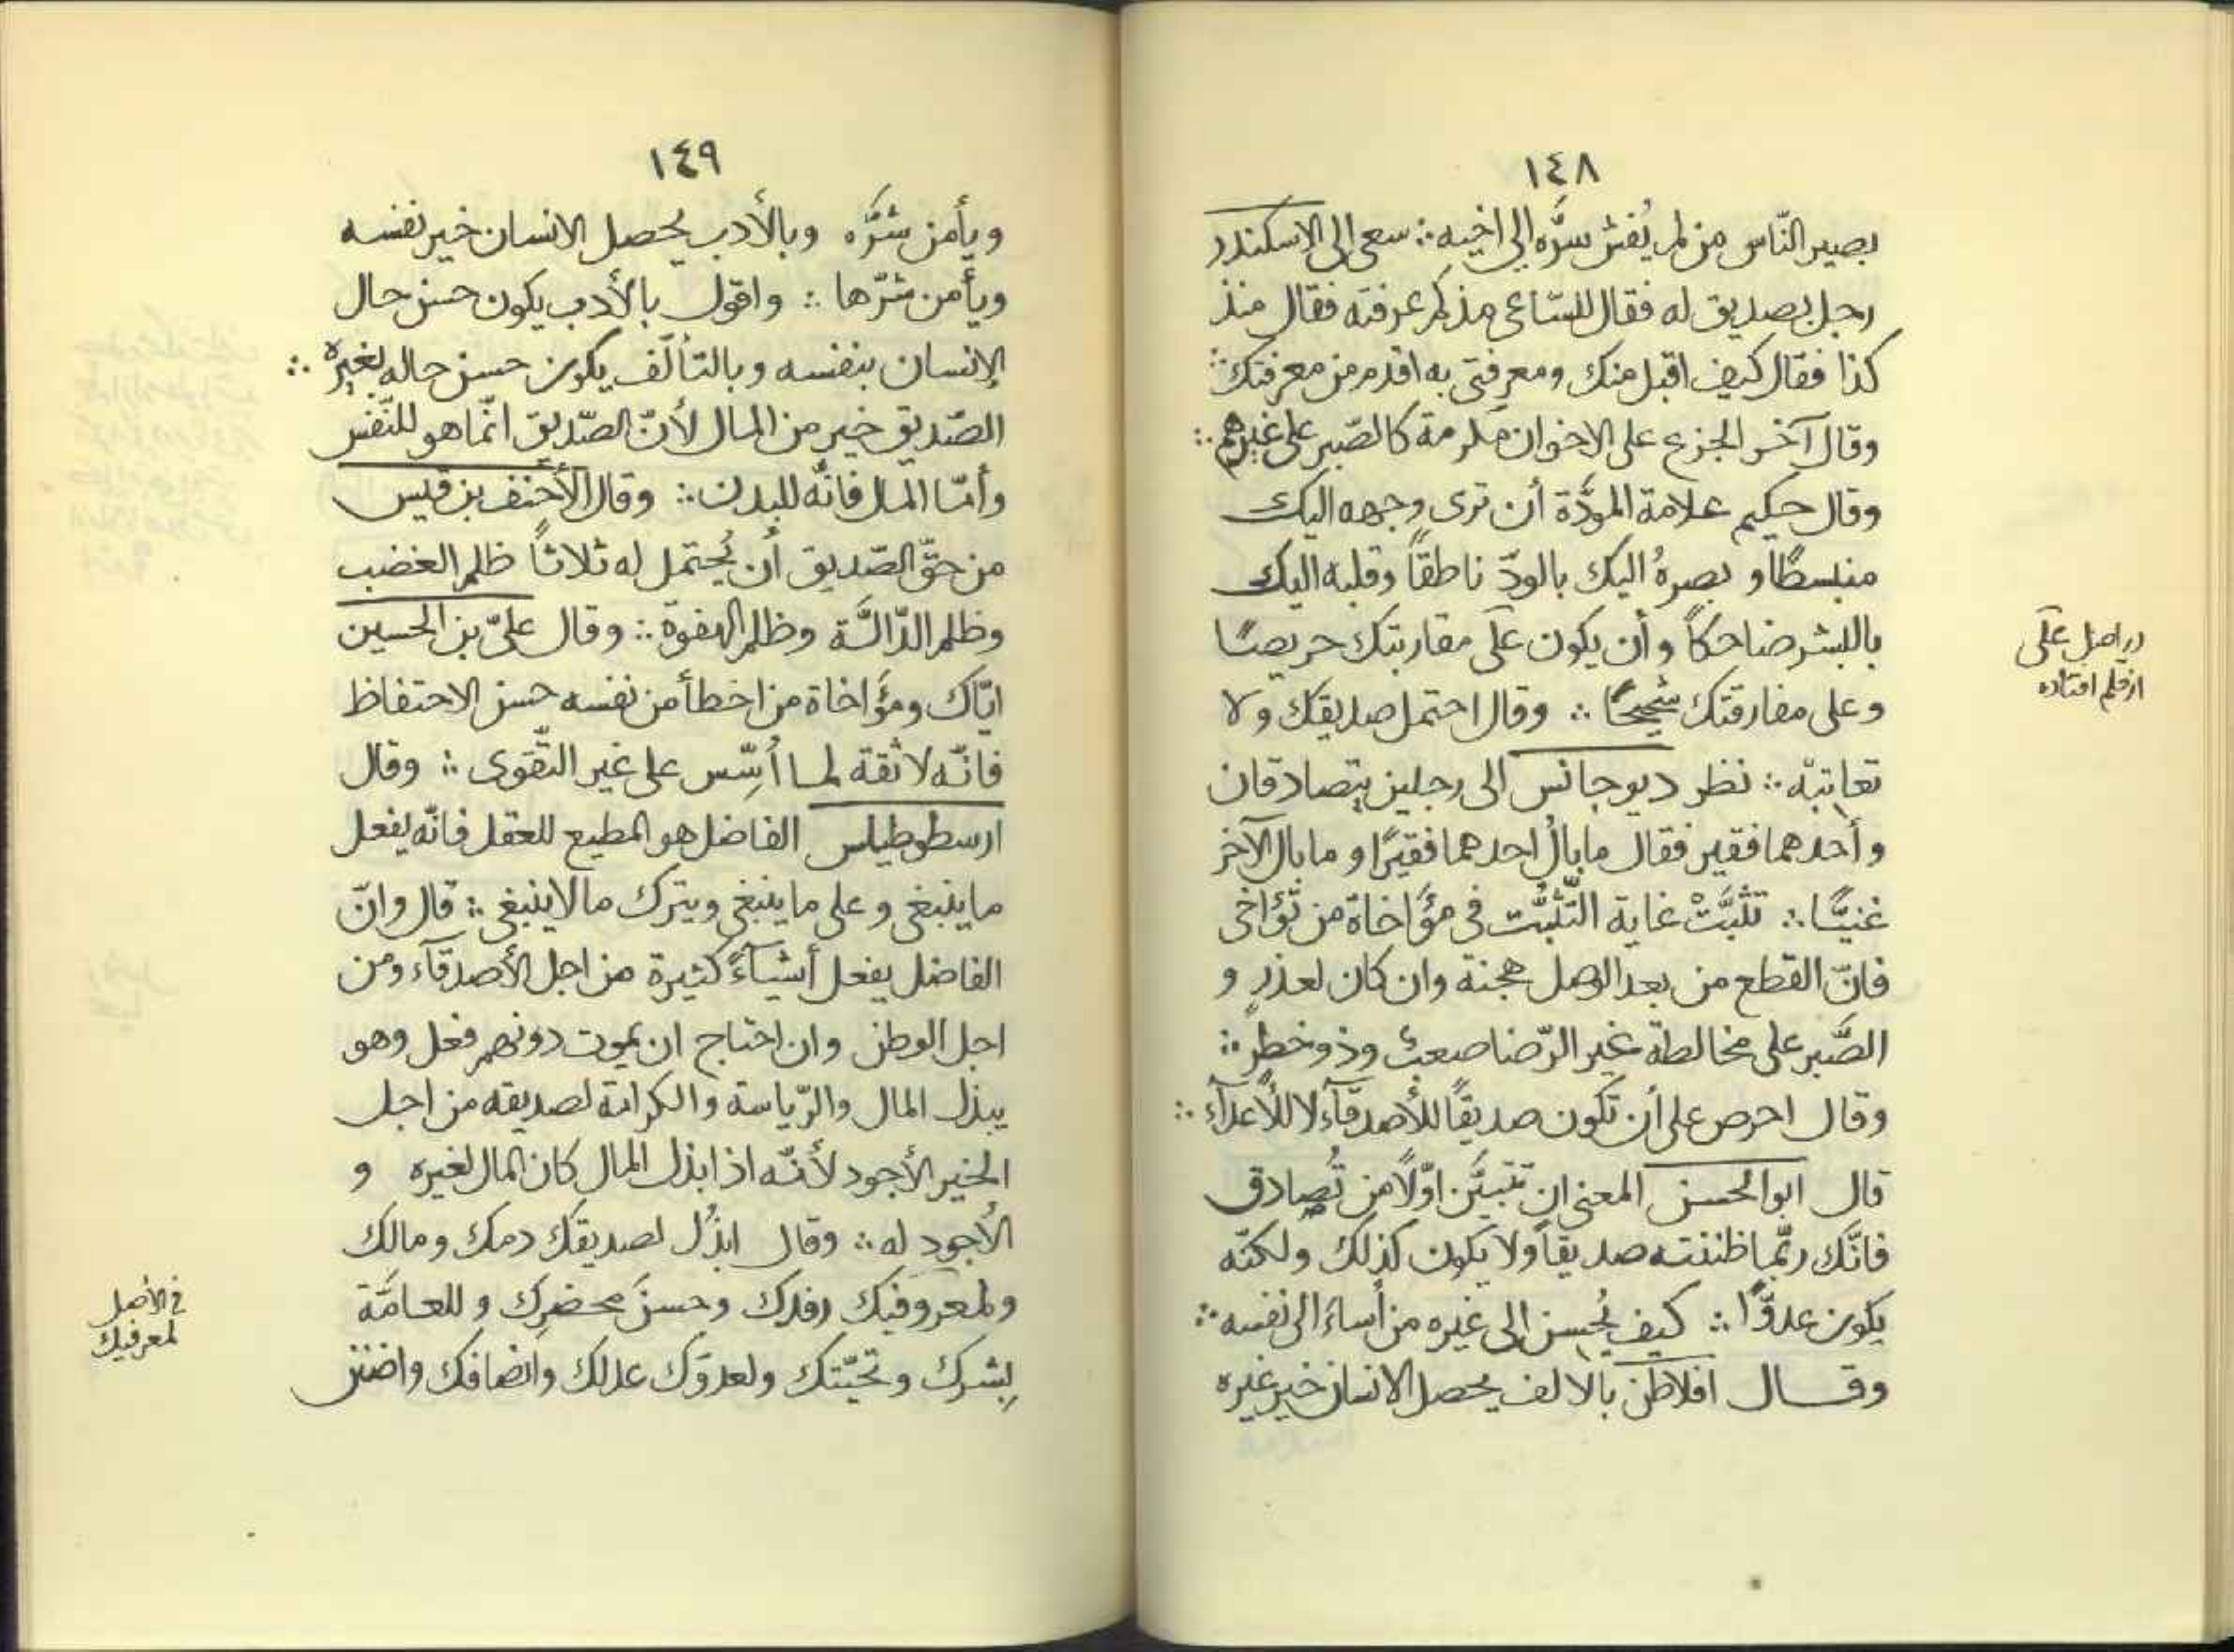 ١٤٨
بصير النّاس من لم يُفش سرَّه إلى اخيه ∴ سعى الى الإسكندر
رجل بصديق له فقال للسّاعى مذ كم عرفته فقال منذ
كذا فقال كيف اقبل منك ومعرفتى به اقدم من معرفتك ∴
وقال آخر الجزع على الاخوان مكرمة كالصّبر على غيرهم ∴
وقال حكيم علامة المودَّة أن ترى وجهه اليك
منبسطًا و بصرهُ اليك بالودّ ناطقاً وقلبه اليك
بالبشر ضاحكاً وأن يكون على مقاربتك حريصًا
وعلى مفارقتك شحيحًا ∴ وقال احتمل صديقك ولا
تعاتبْه ∴ نظر ديوجانس الى رجلين يتصادقان
وأحدهما فقير فقال ما بالُ احدهما فقيرًا و ما بال الآخر
غنيًّا ∴ تثبَّتْ غاية التّثبُّت فى مؤَاخاة من تؤاخى
فانّ القطع من بعد الوصل هجنة وان كان لعذرٍ و
الصَّبر على مخالطة غير الرّضا صعبٌ وذو خطرٍ ∴
وقال احرص على أن تكون صديقاً للأصدقآء لا للأعدآء ∴
قال ابوالحسن المعنى ان تتبيَّن اوّلاً من تُصادق
فانَّك ربّما ظننته صديقاً ولا يكون كذلك ولكنّه
يكون عدوًّا ∴ كيف يُحسِن إلى غيره من أساء الى نفسه ∴
وقال افلاطن بالالف يحصل الانسان خير غيره
در اصل على
از قلم افتاده
١٤٩
ويأمن شرَّه وبالأدب يحصل الانسان خير نفسه
ويأمن شرّها ∴ واقول بالأدب يكون حسن حال
الإنسان بنفسه وبالتألّف يكون حسن حاله بغيره ∴
الصّديق خير من المال لأنّ الصّديق انّما هو للنّفس
وأمّا المال فانّه للبدن ∴ وقال الأحنف بن قيس
من حقّ الصّديق أن يُحتمل له ثلاثاً ظلم الغضب
وظلم الدّالَّة وظلم الهفوة ∴ وقال علىّ بن الحسين
ايّاك ومؤَاخاة من اخطأ من نفسه حسن الاحتفاظ
فانّه لا ثقة لما أُسِّس على غير التّقوى ∴ وقال
ارسطوطيلس الفاضل هو المطيع للعقل فانّه يفعل
ما ينبغى وعلى ما ينبغى ويترك ما لا ينبغى ∴ قال وانّ
الفاضل يفعل أشيآءً كثيرة من اجل الأصدقآء ومن
اجل الوطن وان احتاج ان يموت دونهم فعل وهو
يبذل المال والرّياسة والكرامة لصديقه من اجل
الخير الأجود لأنّه اذا بذل المال كان المال لغيره و
الأجود له ∴ وقال ابذُل لصديقك دمك ومالك
ولمعروفيك رفدك وحسنَ محضرِك وللعامَّة
بِشرك وتحيّتك ولعدوّك عدلك وانصافك واضنن
فى الأصل
لمعرفيك